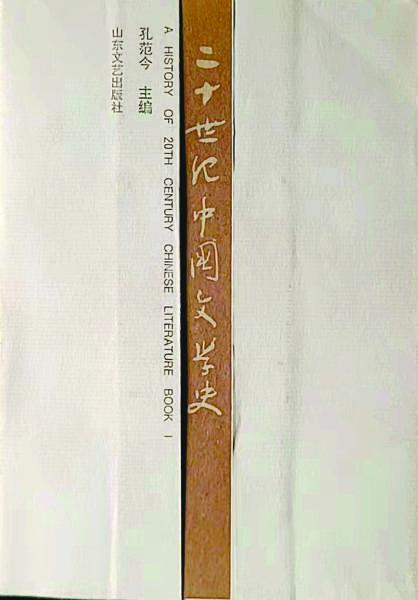 二十世纪中国文学史
A HISTORY OF 20TH CENTURY CHINESE LITERATURE BOOK I
孔范今 主编
山东文艺出版社